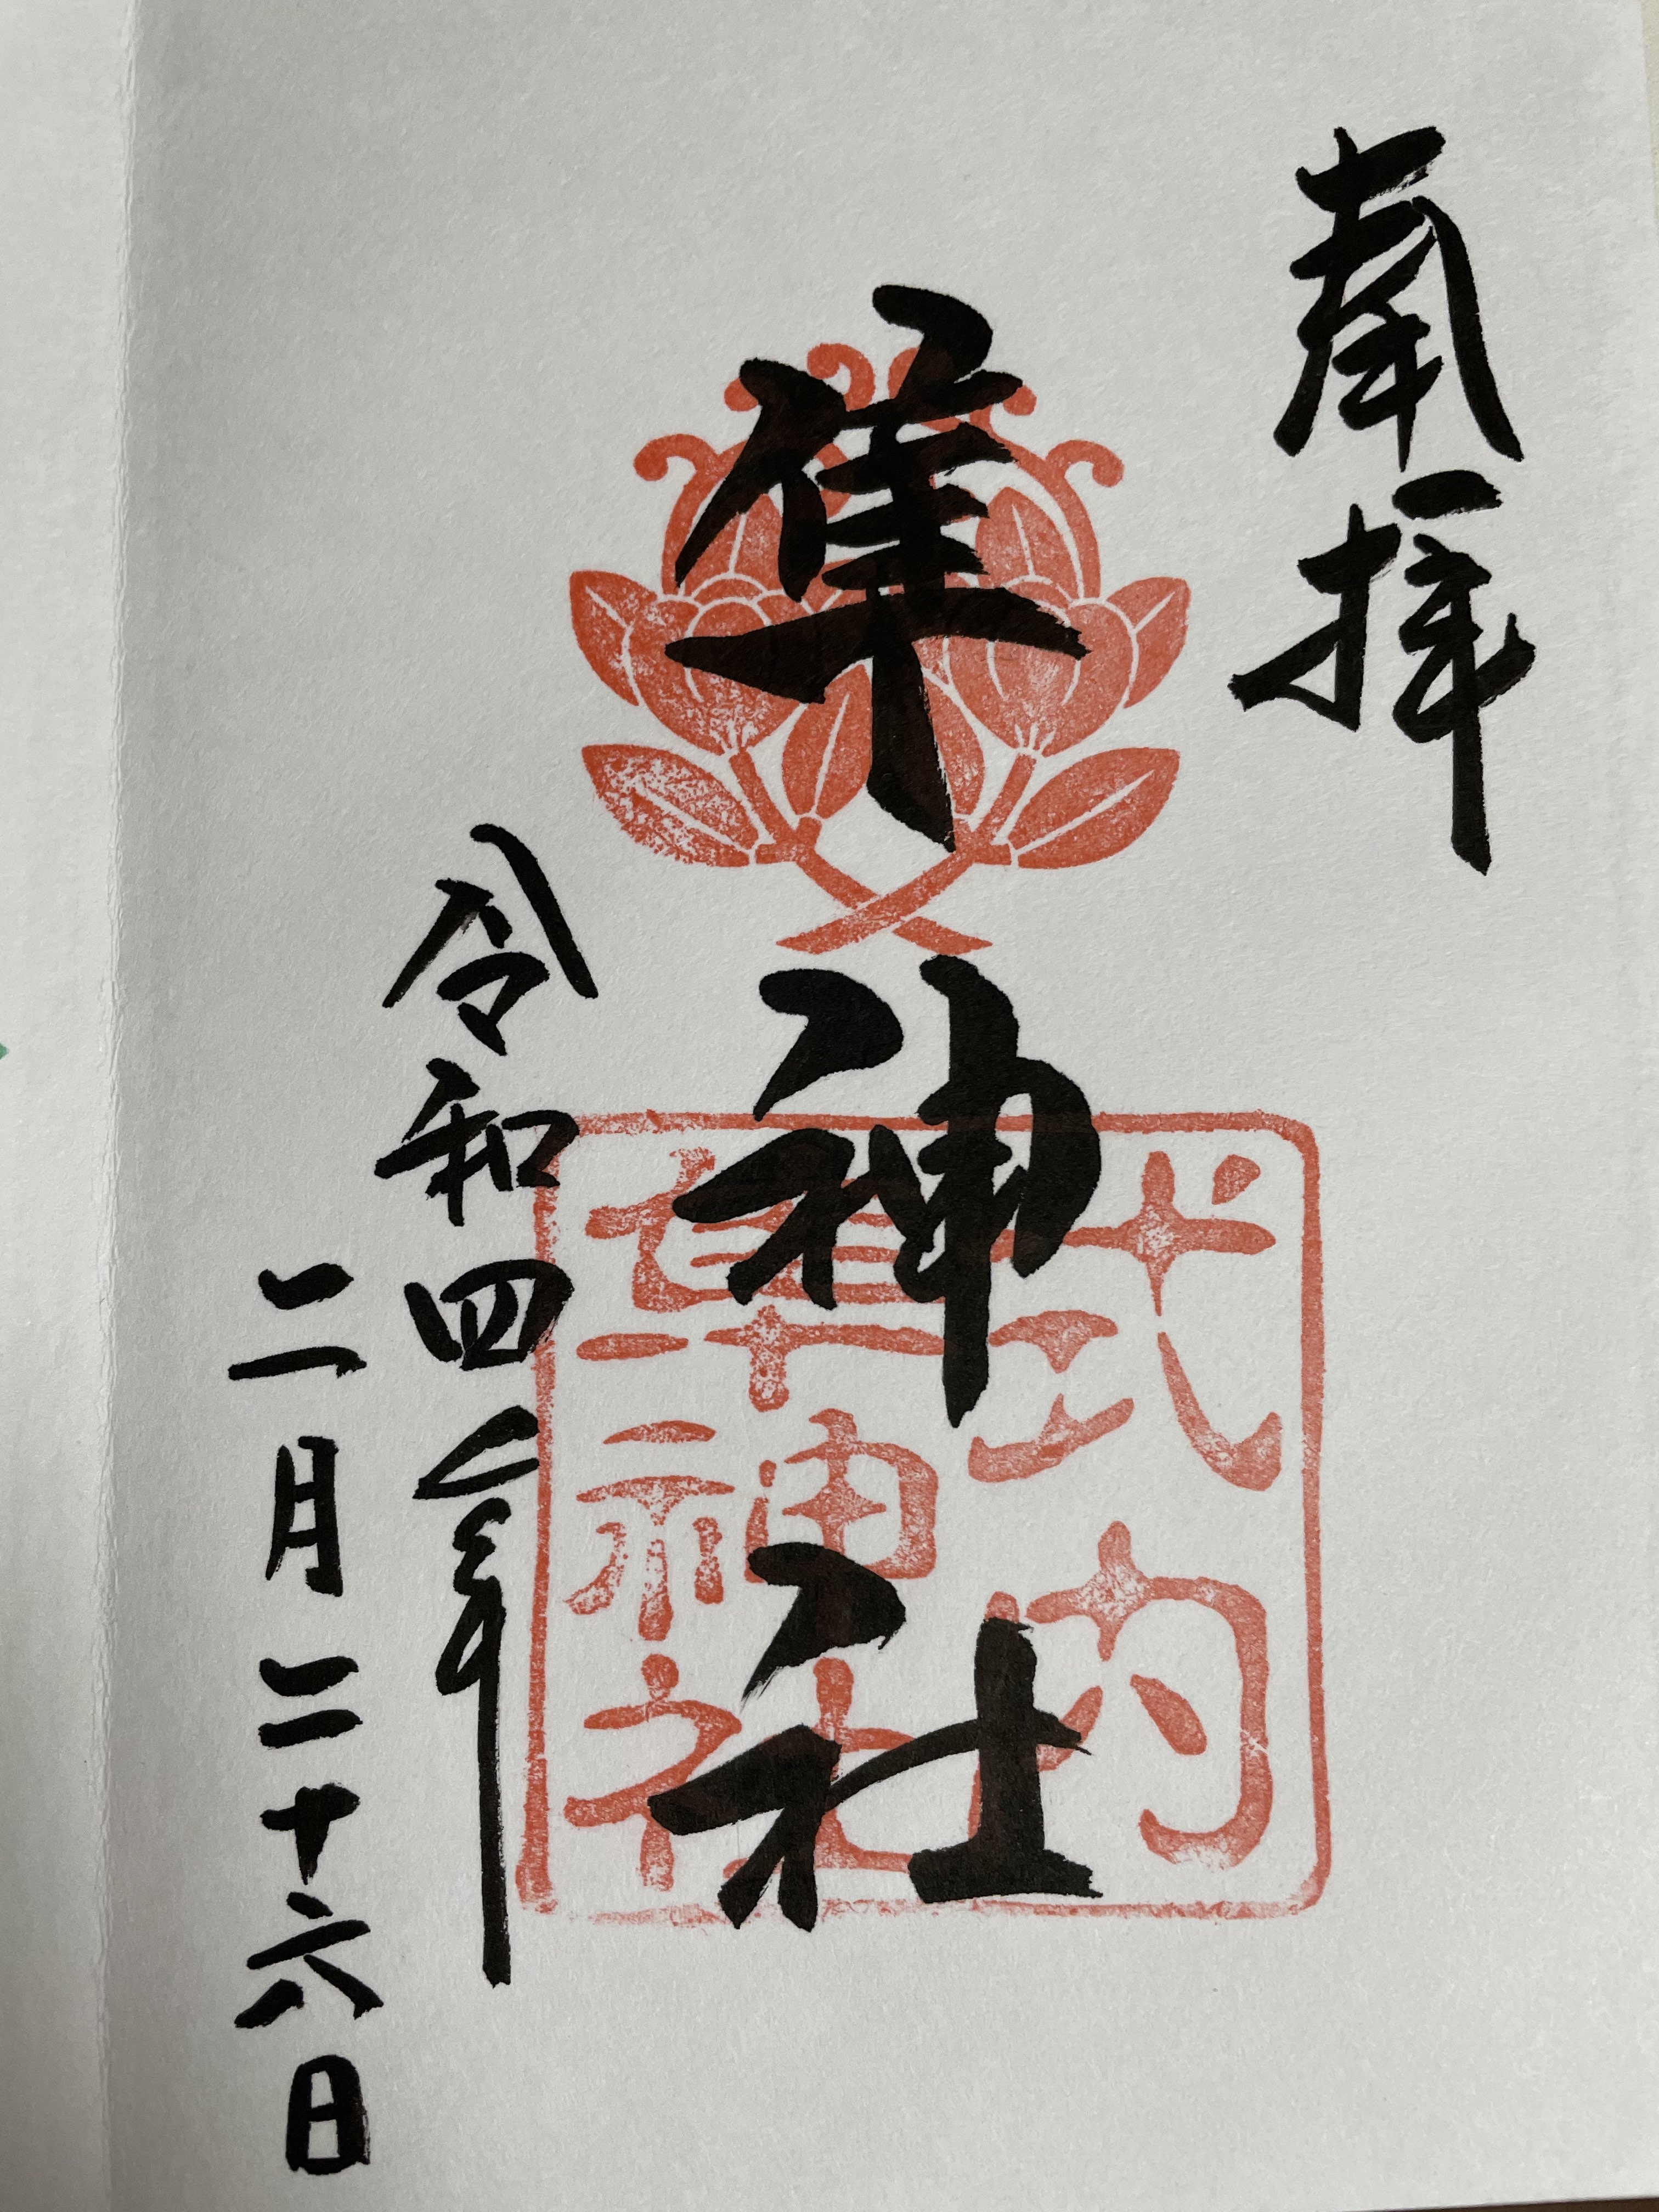 奉拝
隼神社
式内
隼神社
令和四年
二月二十六日